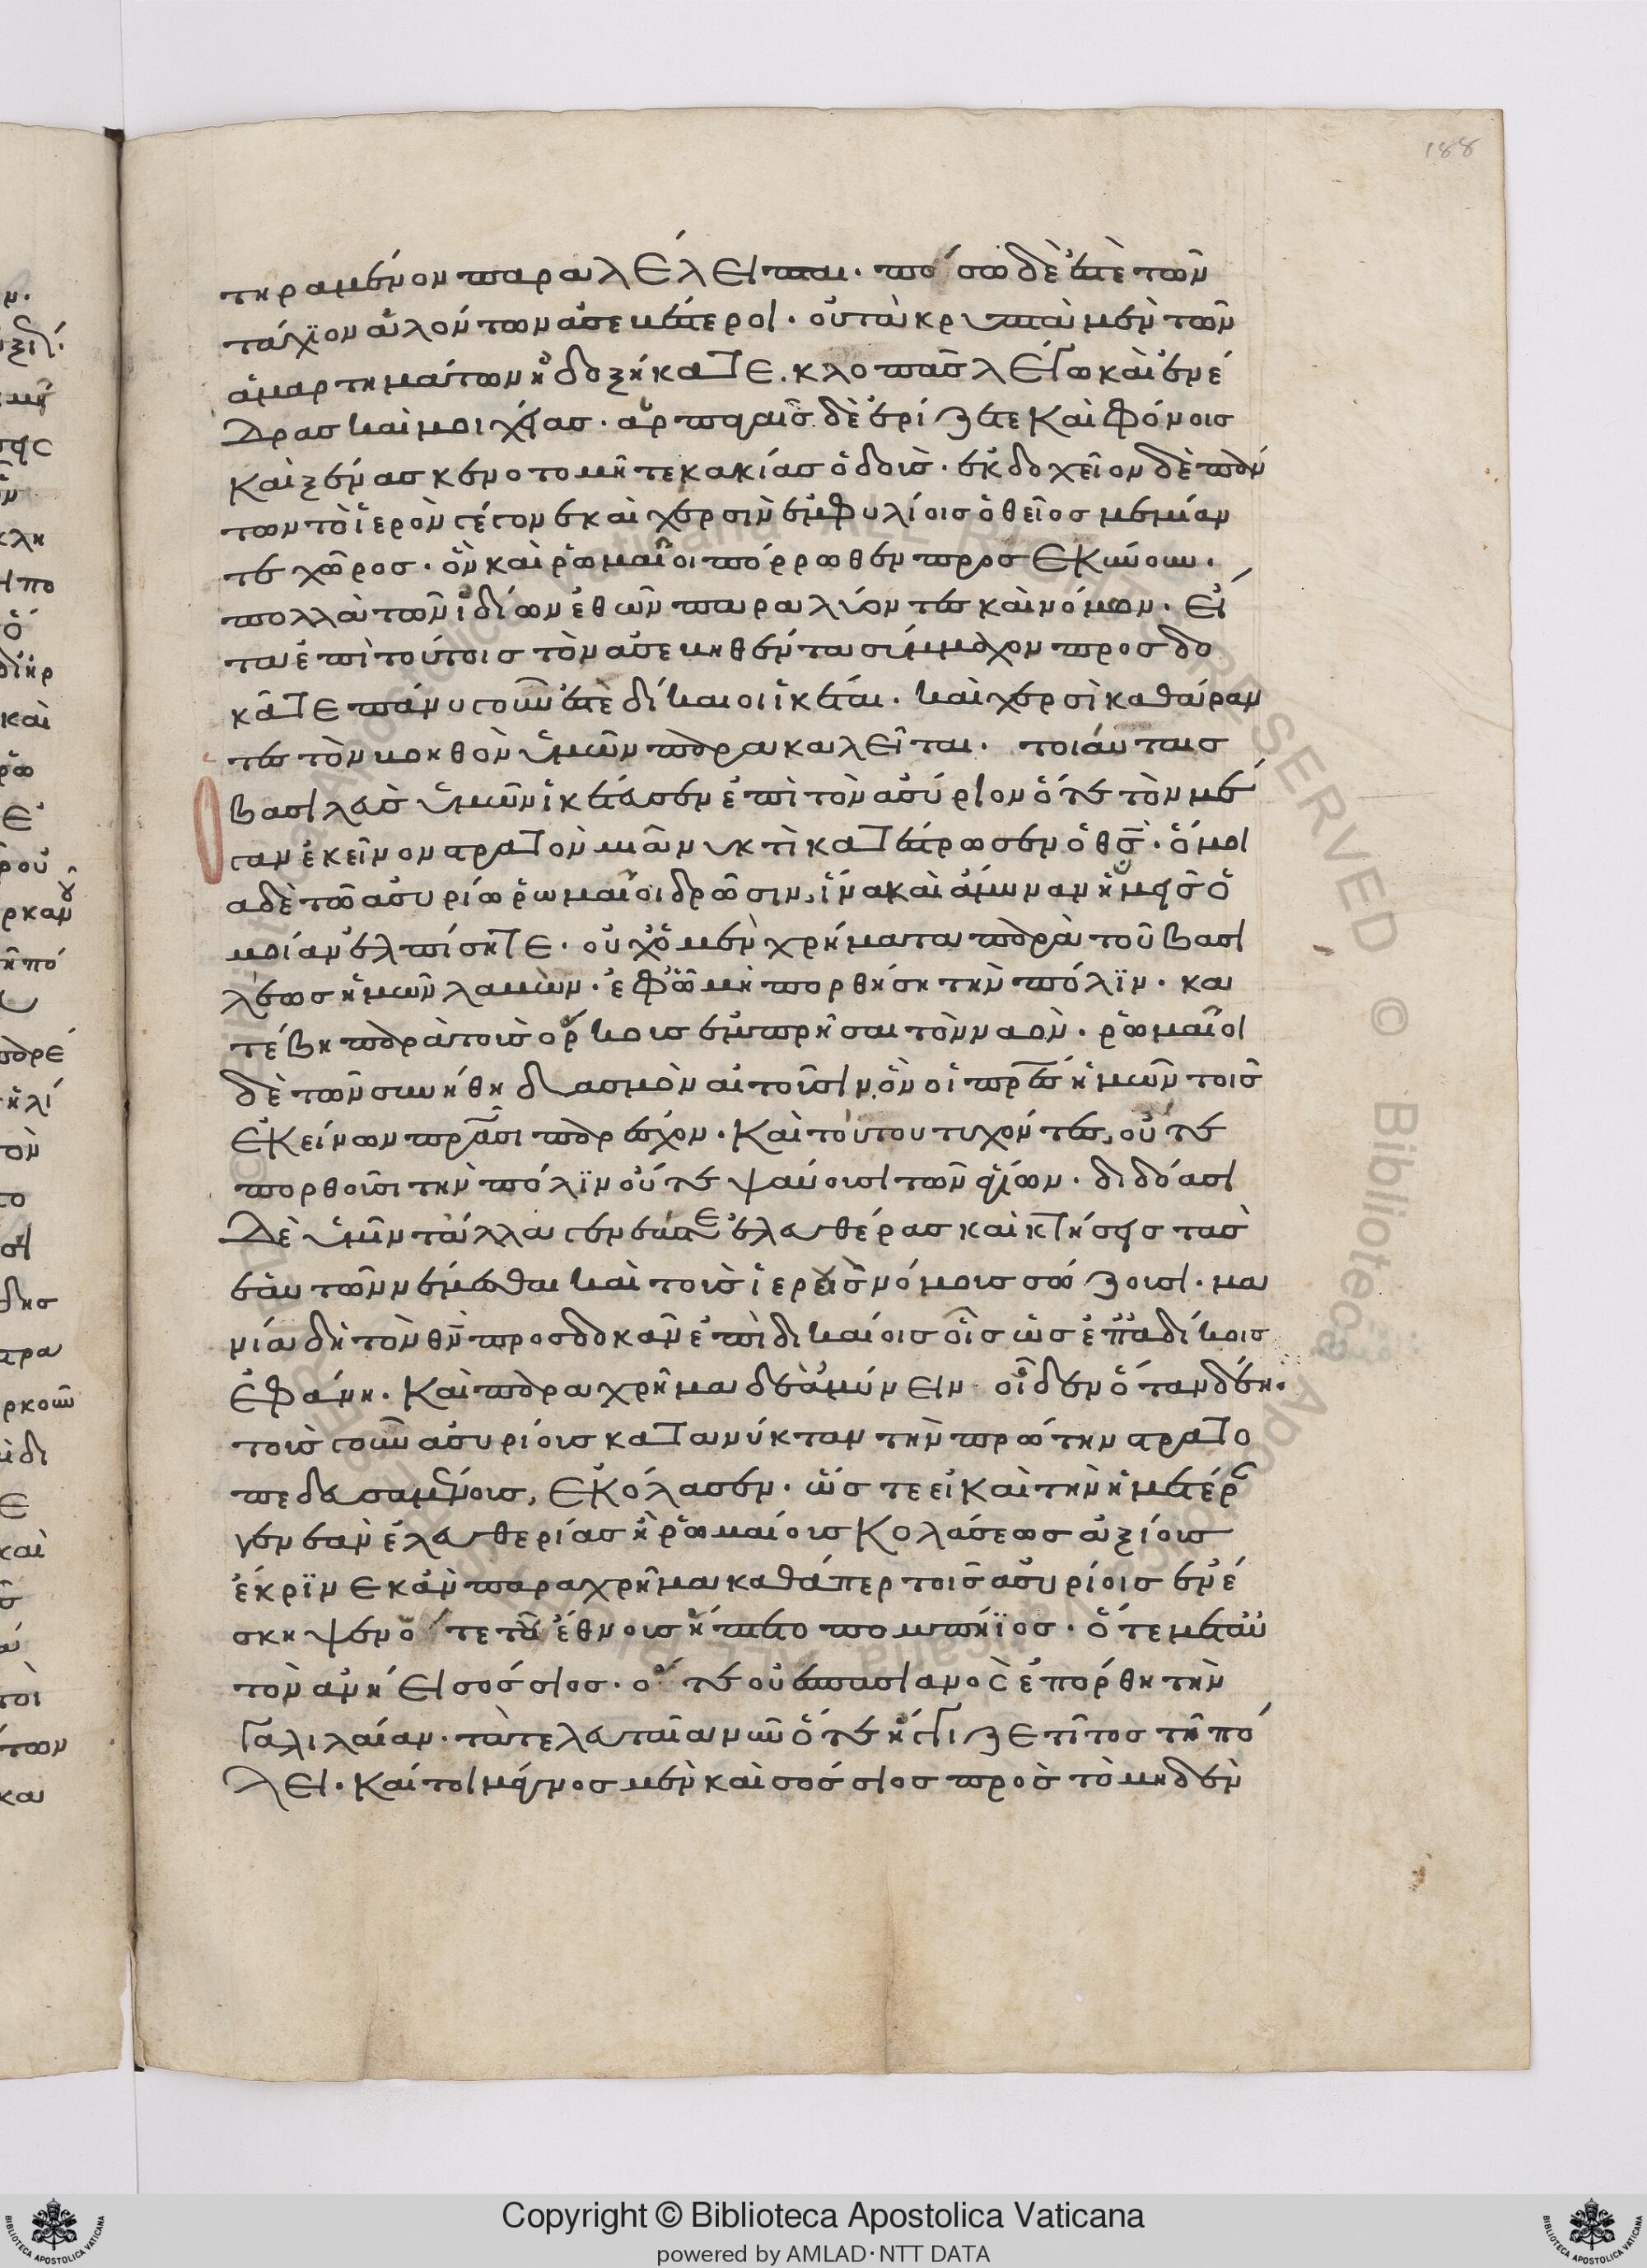 τηραμένον παραλέλειπται. πόσω δὲ ἐστὲ τῶν
τάχϊον ἁλόντων ἀσεβέστεροι. οὐ τὰ κρυπτὰ μὲν τῶν
ἁμαρτημάτων ἠδοξήκατε. κλοπὰς λέγω καὶ ἐνέ
δρας καὶ μοιχείας. ἁρπαγαῖς δὲ ἐρίζετε καὶ φόνοις
καὶ ξένας κενοτομῆτε κακίας ὁδοὺς. ἐκδοχεῖον δὲ πάν
των τὸ ἱερὸν γέγονε καὶ χερσὶν ἐμφυλίοις ὁ θεῖος μεμίαν
τε χῶρος. ὃν καὶ ῥωμαῖοι πόρρωθεν προσεκύνουν.
πολλὰ τῶν ἰδίων ἐθῶν παραλύοντες καὶ νόμων. εἶ
τα ἐπὶ τούτοις τὸν ἀσεβηθέντα σύμμαχον προσδο
κᾶτε πάνυ γοῦν ἐστὲ δίκαιοι ἱκέται. καὶ χερσὶ καθάραν
τες τὸν βοηθὸν ὑμῶν παρακαλεῖται. τοιάυταις
βασιλεὺς ὑμῶν ἱκέτευσεν ἐπὶ τὸν ἀσύριον ὅτε τὸν μέ
γαν ἐκεῖνον στρατὸν μιᾶ νυκτὶ κατέστρωσεν ὁ θσ̅. ὅμοι
α δὲ τῶ ἀσυρίω ῥωμαῖοι δρῶσιν, ἵνα καὶ ἄμυναν ἡμεῖς ὁ
μοίαν ἐλπίσητε. οὐχ ὁ μὲν χρήματα παρὰ τοῦ βασι
λέως ἡμῶν λαβὼν. ἐφ ὧ μὴ πορθήση τὴν πόλϊν. κα
τέβη παρὰ τοὺς ὅρκους ἐμπρῆσαι τὸν ναὸν. ῥωμαῖοι
δὲ τῶν συνήθη δασμὸν αἰτοῦσιν, ὃν οἱ πρες ἡμῶν τοῖς
ἐκείνων πρᾶσι παρέσχον. καὶ τούτου τυχόντες, οὔτε
πορθοῦσι τὴν πόλϊν οὔτε ψαύουσι τῶν ἁγίων. διδόασι
δὲ ὑμῖν τἄλλα γενεάς τε ἐλευθέρας καὶ κτήσεις τὰς
ἑαυτῶν νέμεσθαι καὶ τοὺς ἱεροὺς νόμους σώζουσι. μα
νία δὴ τὸν θν̅ προσδοκᾶν ἐπὶ δικαίοις οἷς ὡς ἐπ ἀδίκοις
ἐφάνη. καὶ παραχρῆμα δὲ ἀμύνειν οἶδεν ὅταν δέη.
τοὺς γοῦν ἀσυρίους κατὰ νύκταν τὴν πρώτην στρατο
πεδευσαμένους, ἐκόλασεν. ὥς τε εἰ καὶ τὴν ἡμετέραν
γενεὰν ἐλευθερίας ἢ ῥωμαίους κολάσεως ἀξίους
ἔκρϊνε κἂν παραχρῆμα καθάπερ τοῖς ἀσυρίοις ἐνέ
σκηψεν ὅτε τοῦ ἔθνους ἥπτετο πομπήϊος. ὅτε μετ αὐ
τὸν ἀνήει σόσσιος. ὅτε οὐεσπασιανὸς ἐπόρθη τὴν
γαλιλαίαν. τὰ τελευταῖα νῦν ὅτε ἤγγιζε τῖτος τῆ πό
λει. καίτοι μάγνος μὲν καὶ σόσσιος πρὸς τὸ μηδὲν